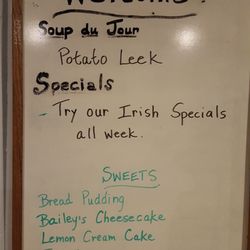 Soup du Jour
Potato Leek
Specials
- Try our Irish Specials
all week.
SWEETS
Bread Pudding
Bailey's Cheesecake
Lemon Cream Cake